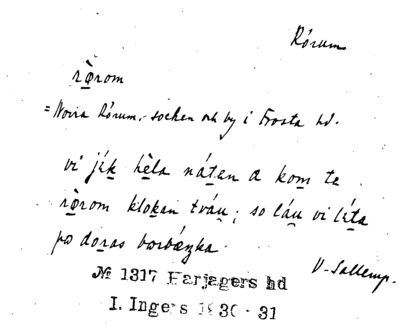 Rörum
rò̱rom
= Norra Rörum, socken och by i Frosta hd.
vi jík̲ hè̱la nát̲en a kom̲ te
rò̱rom klok̲an tváu̲; so láu̲ vi lít̲a
po dor̲as borbæŋka.
V-Sallerup.
№ 1317 Harjagers hd
I. Ingers 1930-31